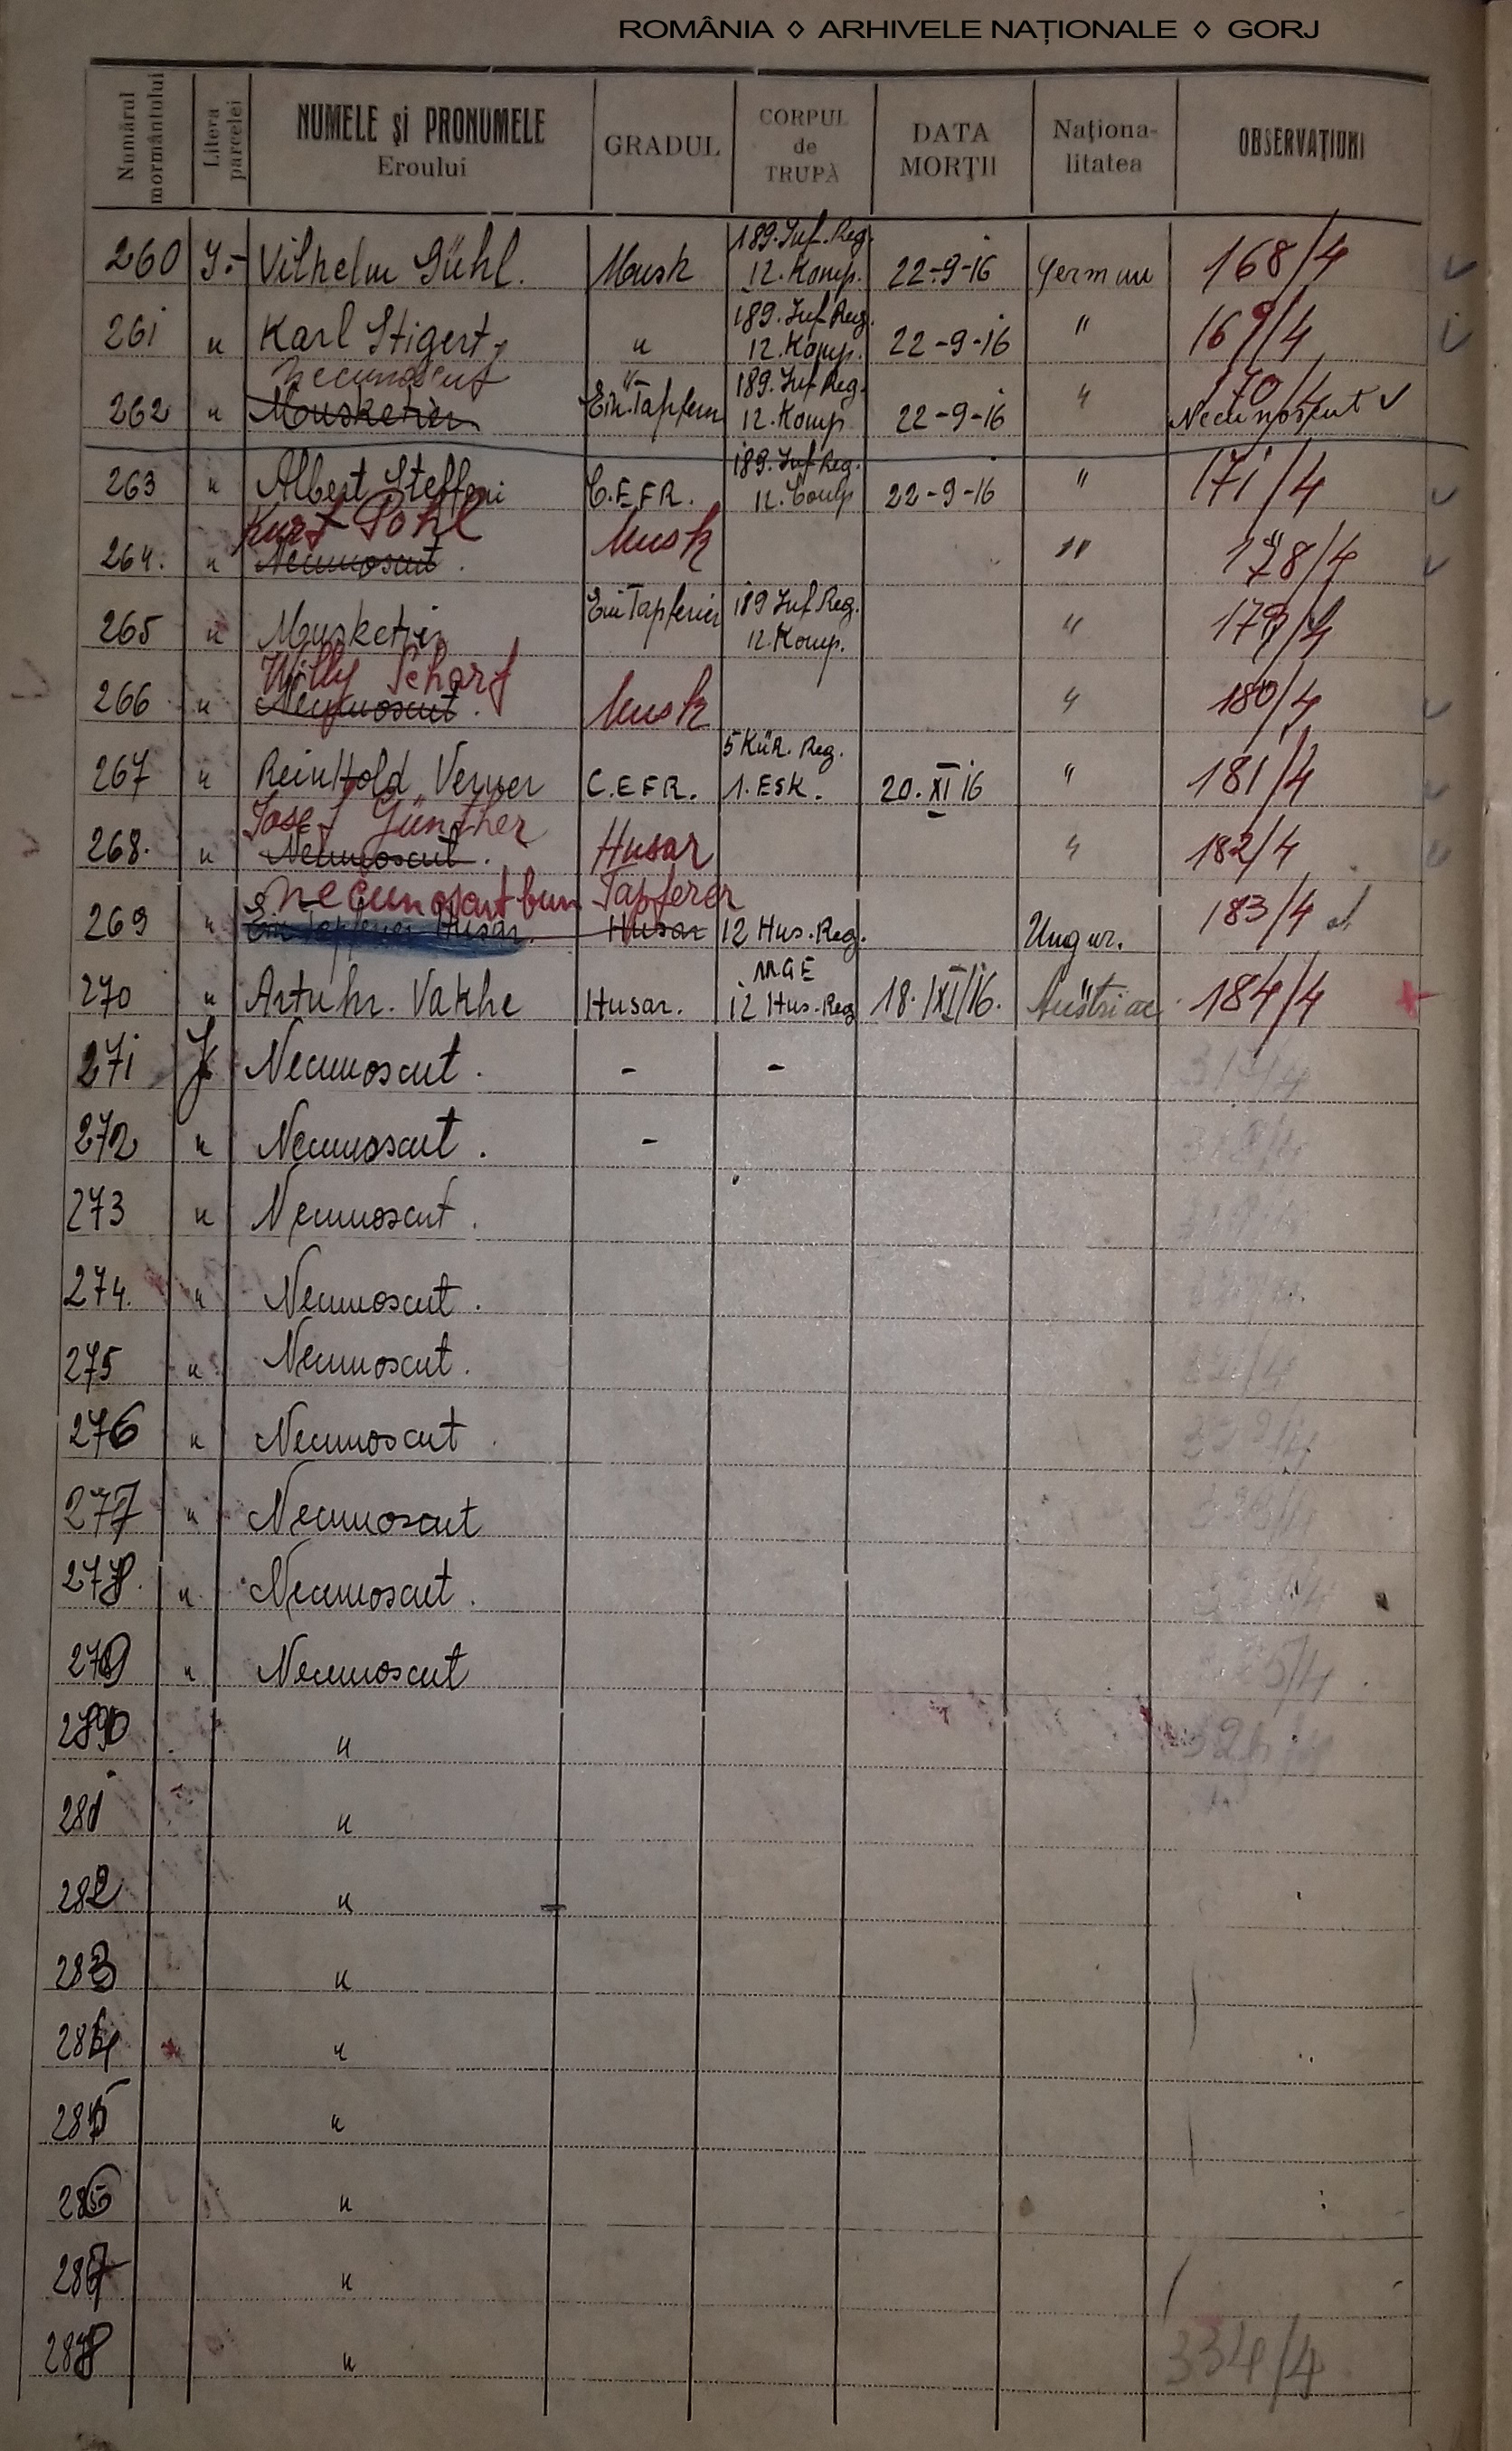 ROMÂNIA ◊ ARHIVELE NAȚIONALE ◊ GORJ
Numărul mormântului Litera parcelei NUMELE și PRONUMELE Eroului GRADUL CORPUL de TRUPĂ DATA MORȚII Naționalitatea OBSERVAȚIUNI
189. Inf. Reg.
260 J.- Vilhelm Gühl. Musk 12. Komp. 22-9-16 German 168/4
189. Inf. Reg.
261 " Karl Stigert " 12. Komp. 22-9-16 " 169/4
Necunoscut 189. Inf. Reg. 170/4
262 " Musketier Ein Tapferer 12. Komp. 22-9-16 " Necunoscut
189. Inf. Reg.
263 " Albert Steffeni C.E.F.R. 12. Comp 22-9-16 " 171/4
Kurt Pohl Musk
264. " Necunoscut. " 178/4
Ein Tapferer 189 Inf Reg.
265 " Musketir 12. Komp. " 179/4
Willy Scharf
266 " Necunoscut. Musk " 180/4
5 KÜR. Reg.
267 " Reinhold Verner C.E.F.R. 1. ESK. 20. XI 16 " 181/4
Josef Günther
268. " Necunoscut. Husar " 182/4
Necunoscut bun Tapferer
269 " Ein Tapferer Husar. Husar 12 Hus. Reg. Ungur. 183/4
MGE
270 " Artuhr. Vakhe Husar. 12 Hus. Reg 18. XI/16. Austriac 184/4
271 K Necunoscut. - -
272 " Necunoscut. -
273 " Necunoscut.
274. " Necunoscut.
275 " Necunoscut.
276 " Necunoscut.
277 " Necunoscut
278. " Necunoscut.
279 " Necunoscut
280 "
281 "
282 "
283 "
284 "
285 "
286 "
287 "
288 " 334/4